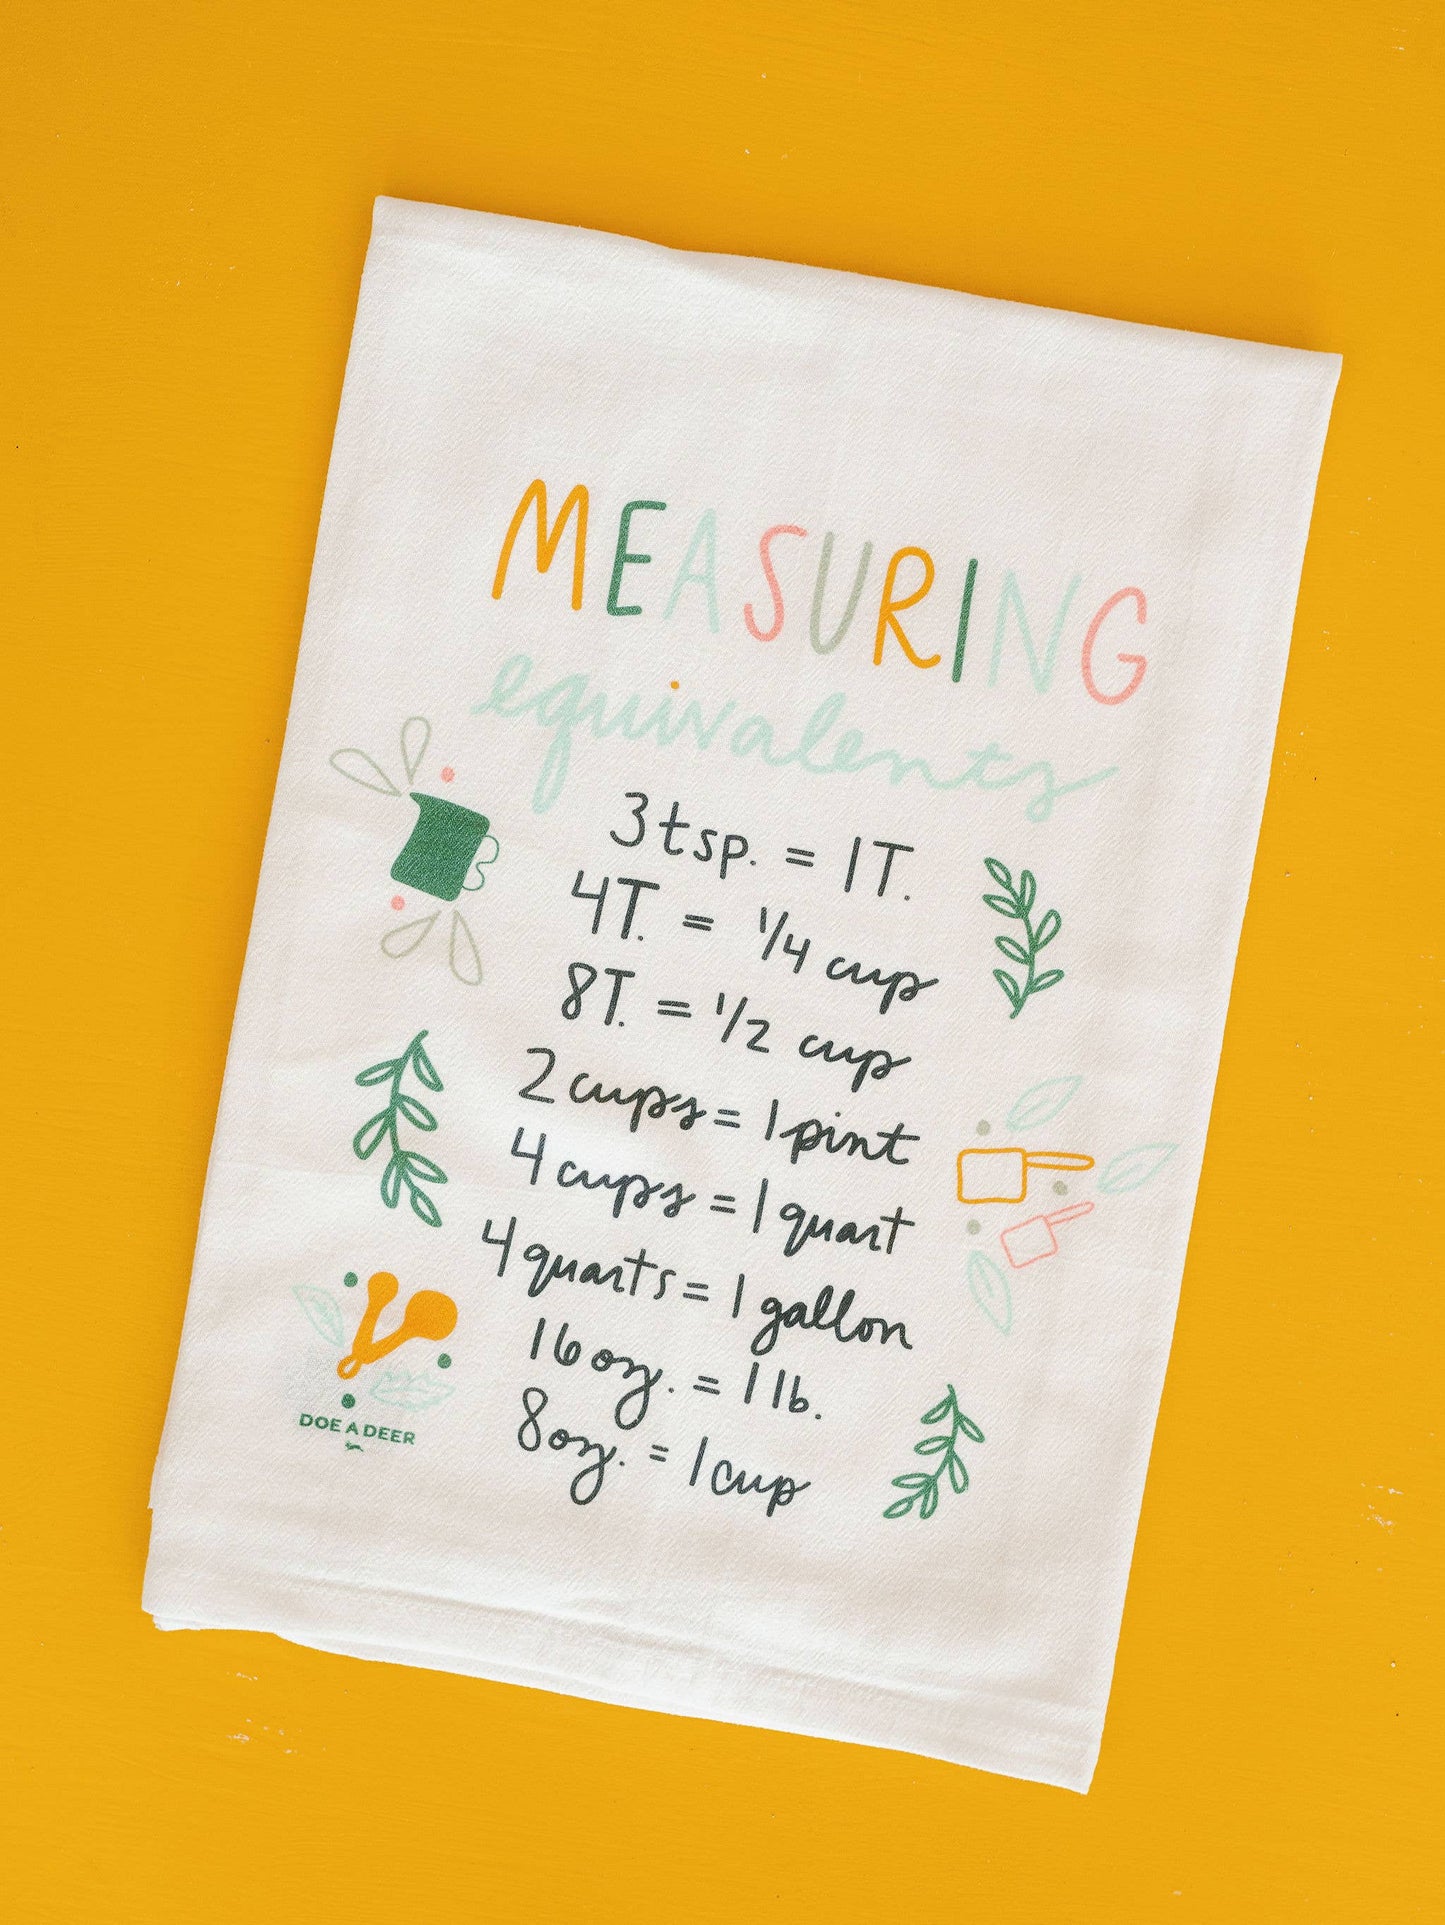 MEASURING
equivalents
3 tsp. = 1 T.
4 T. = 1/4 cup
8 T. = 1/2 cup
2 cups = 1 pint
4 cups = 1 quart
4 quarts = 1 gallon
16 oz. = 1 lb.
8 oz. = 1 cup
DOE A DEER